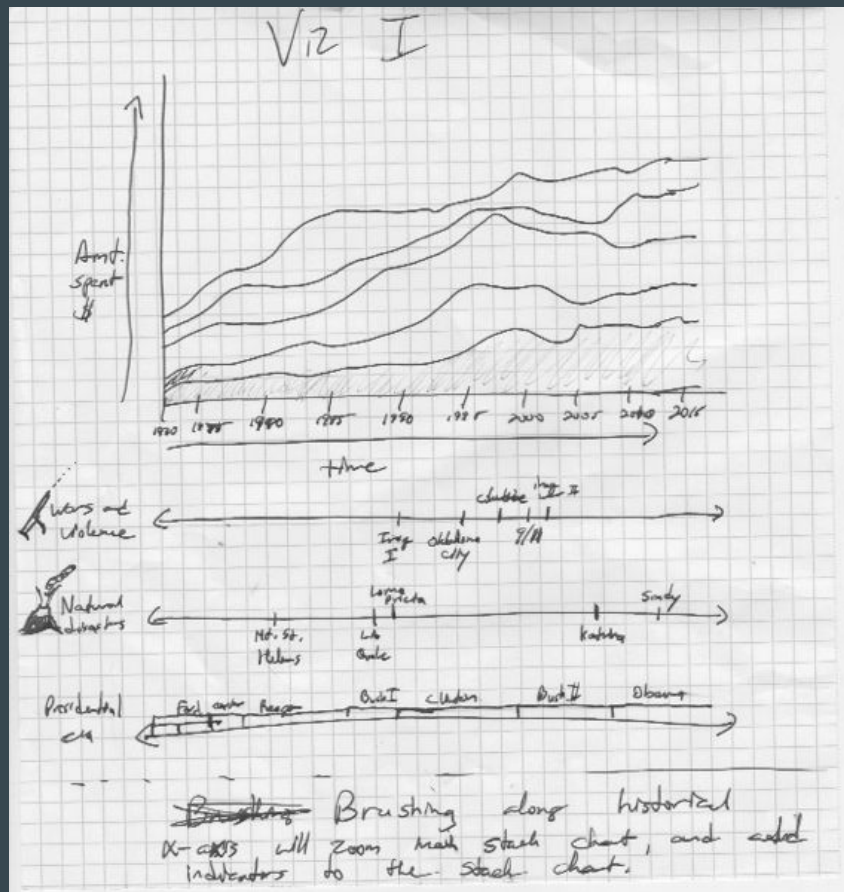 Viz I
Amt.
spent
$
1970 1975 1980 1985 1990 1995 2000 2005 2010 2015
time
Wars and
violence
Iraq
I
Oklahoma
City
9/11
II
Natural
disasters
Mt. St.
Helens
Loma
Prieta
Katrina
Sandy
Presidential
era
Ford Carter Reagan Bush I Clinton Bush II Obama
Brushing along historical
x-axis will zoom main stack chart, and add
indicators to the stack chart.